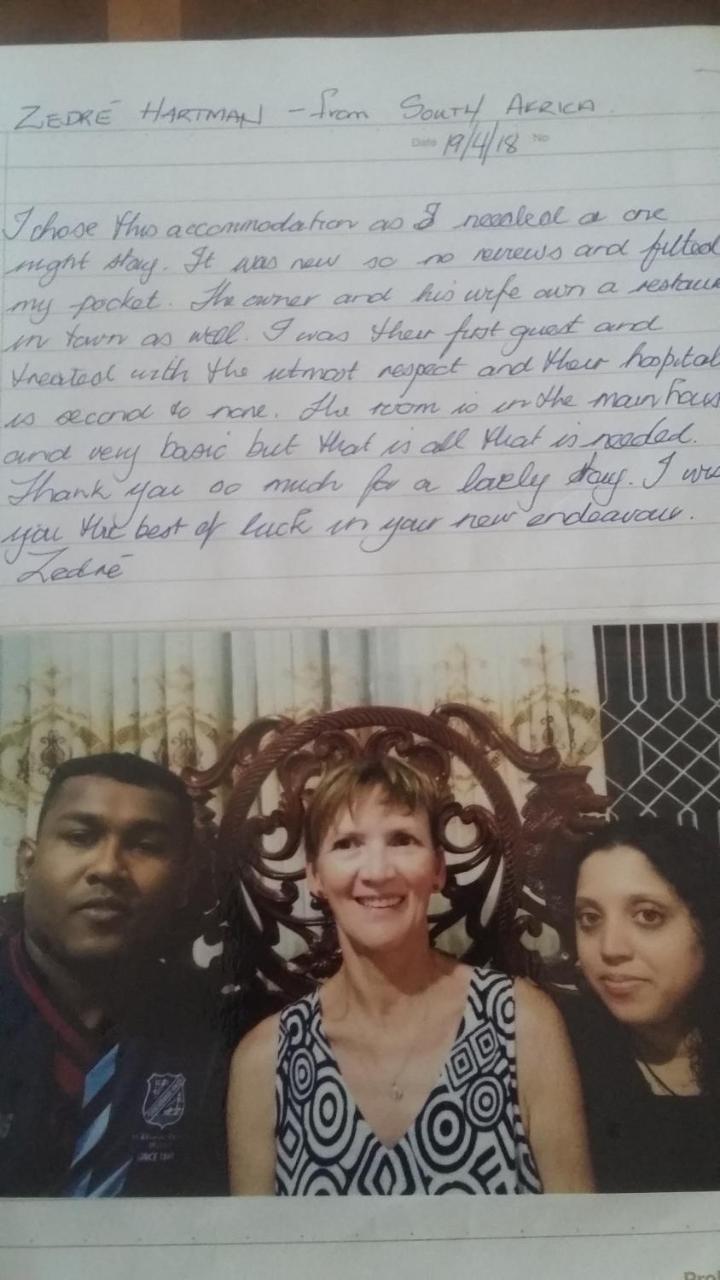 ZEDRÉ HARTMAN - from SOUTH AFRICA.
Date 19/4/18 No
I chose this accommodation as I needed a one
night stay. It was new so no reviews and fitted
my pocket. The owner and his wife own a restaur
in town as well. I was their first guest and
treated with the utmost respect and their hospital
is second to none. The room is in the main hous
and very basic but that is all that is needed.
Thank you so much for a lovely stay. I wi
you the best of luck in your new endeavour.
Zedré
SINCE